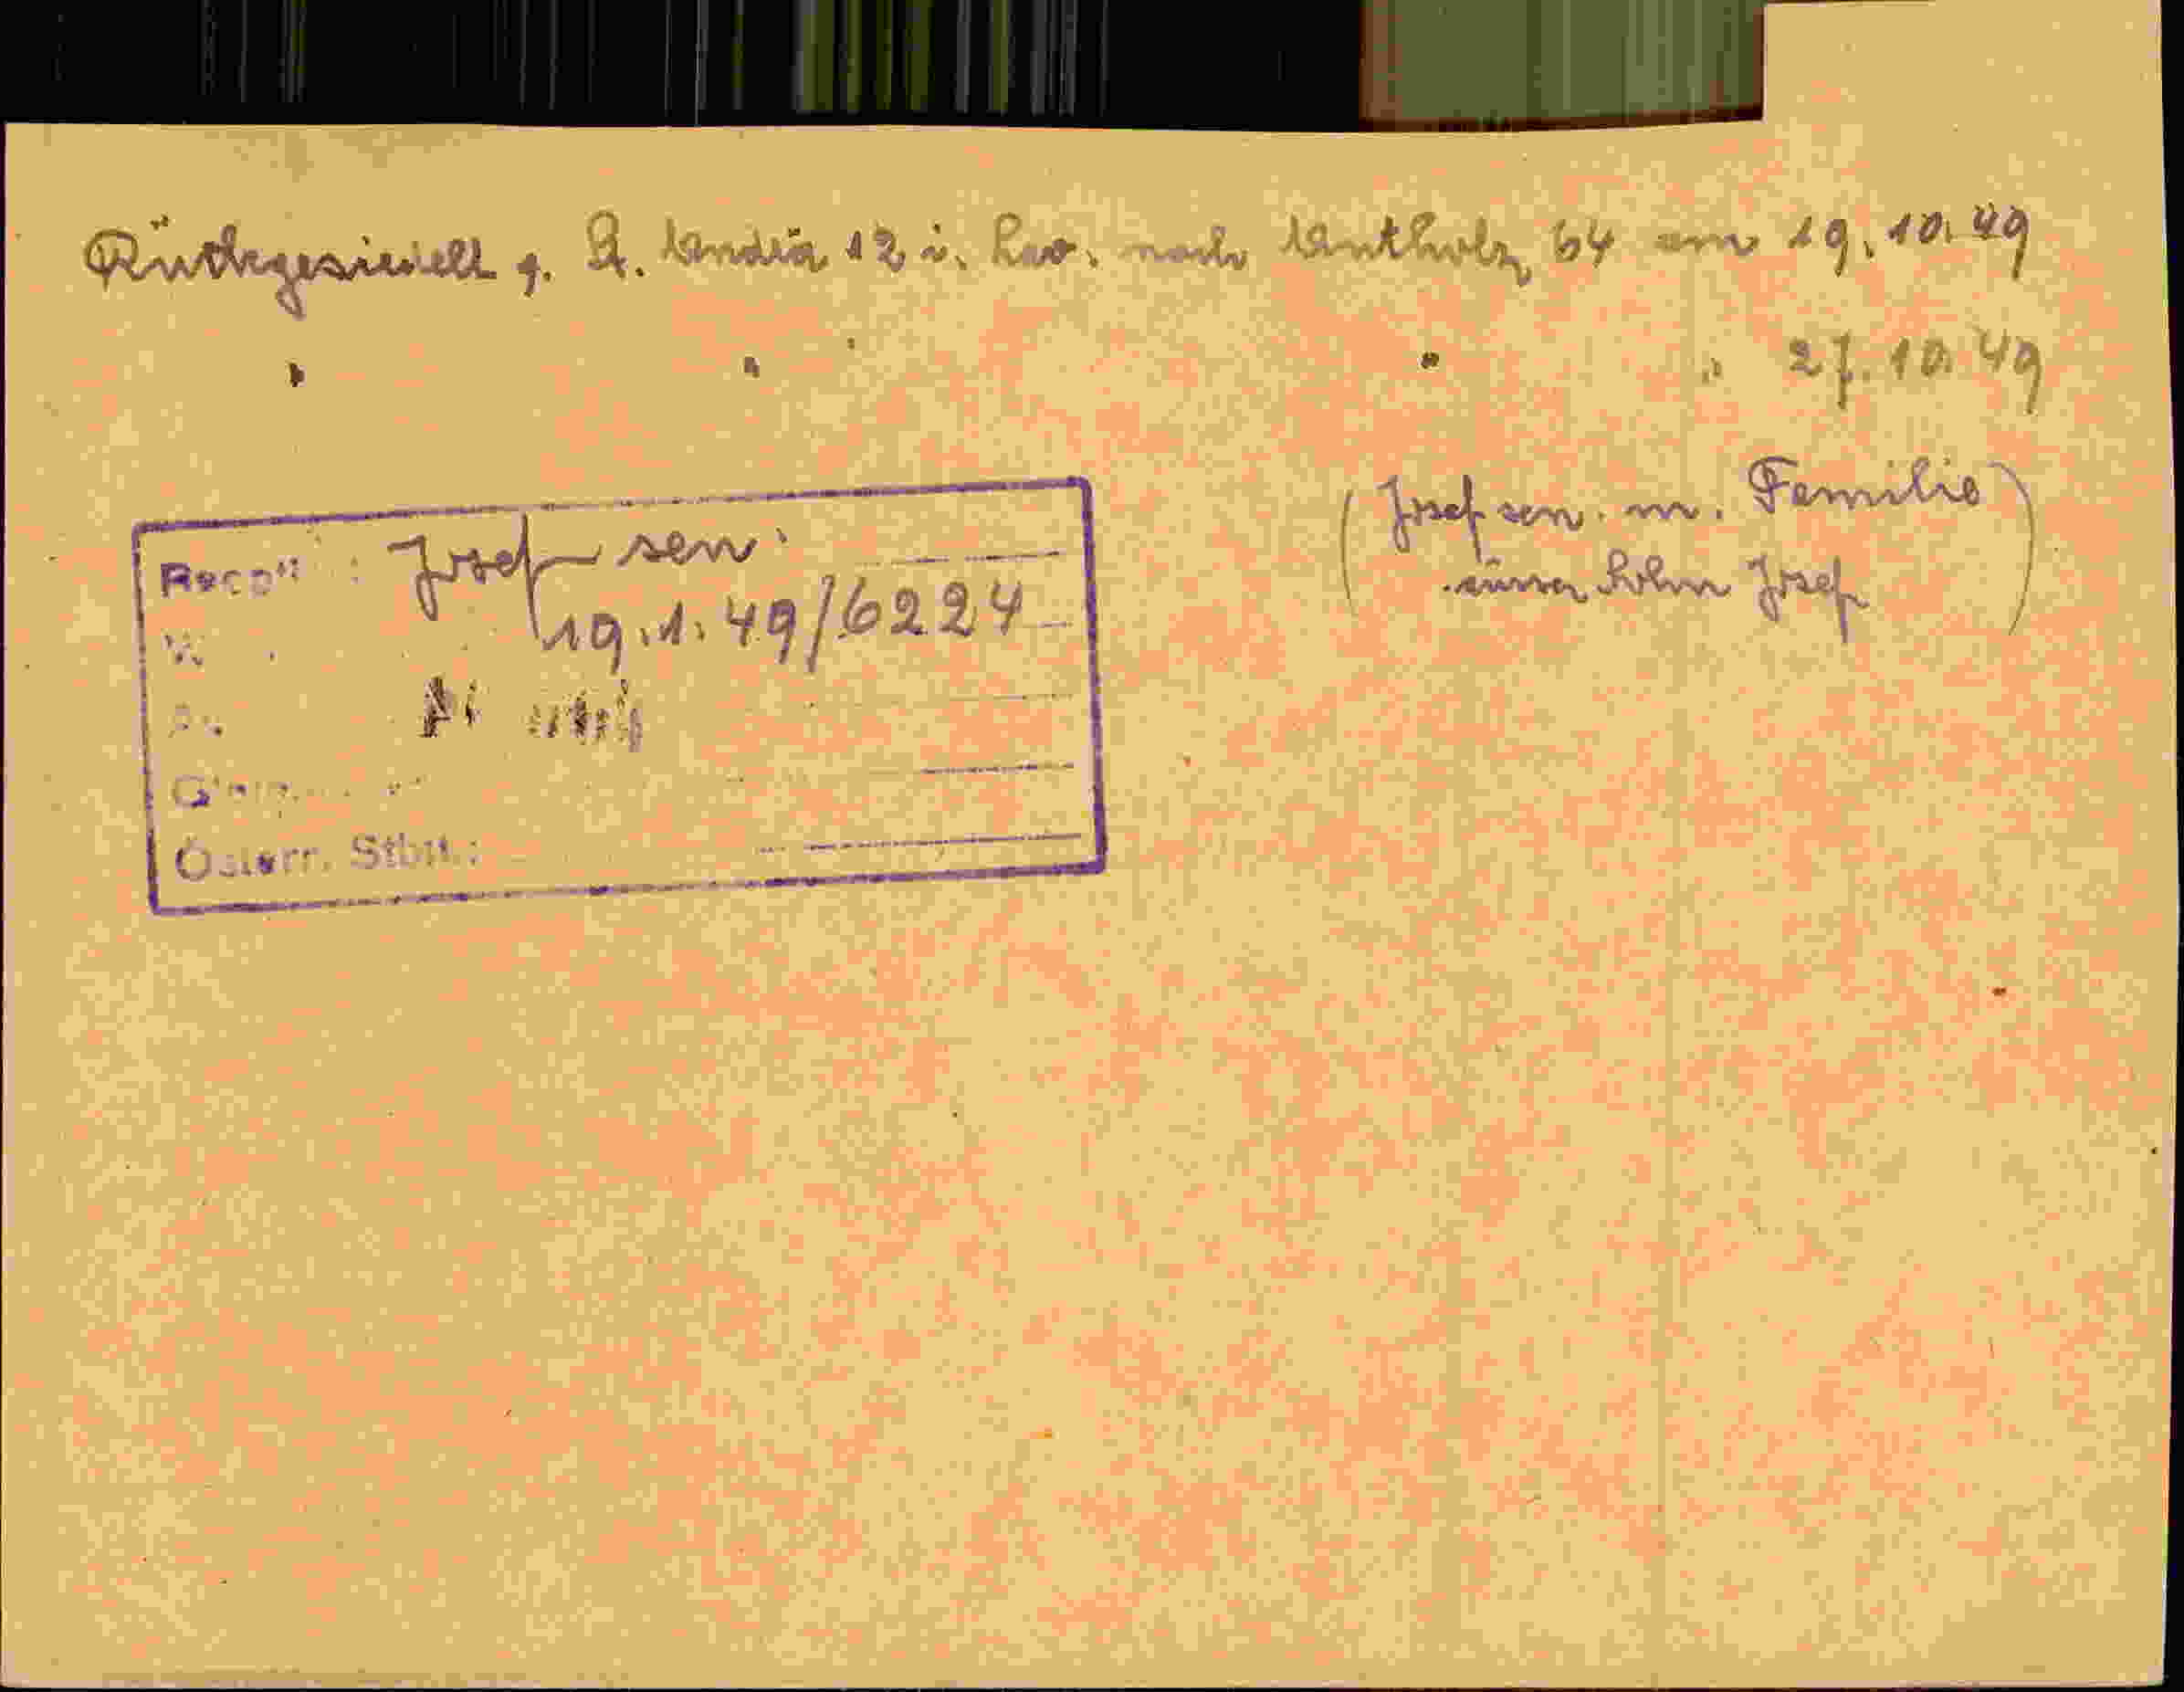 Rückgesiedelt v. St. Andrä 12 i. Lav. nach Antholz 64 am 19.10.49
" " " " 27.10.49
(Josef sen. m. Familie
ausser Sohn Josef)
Josef sen.
19.1.49/6224
Österr. Stbg.: